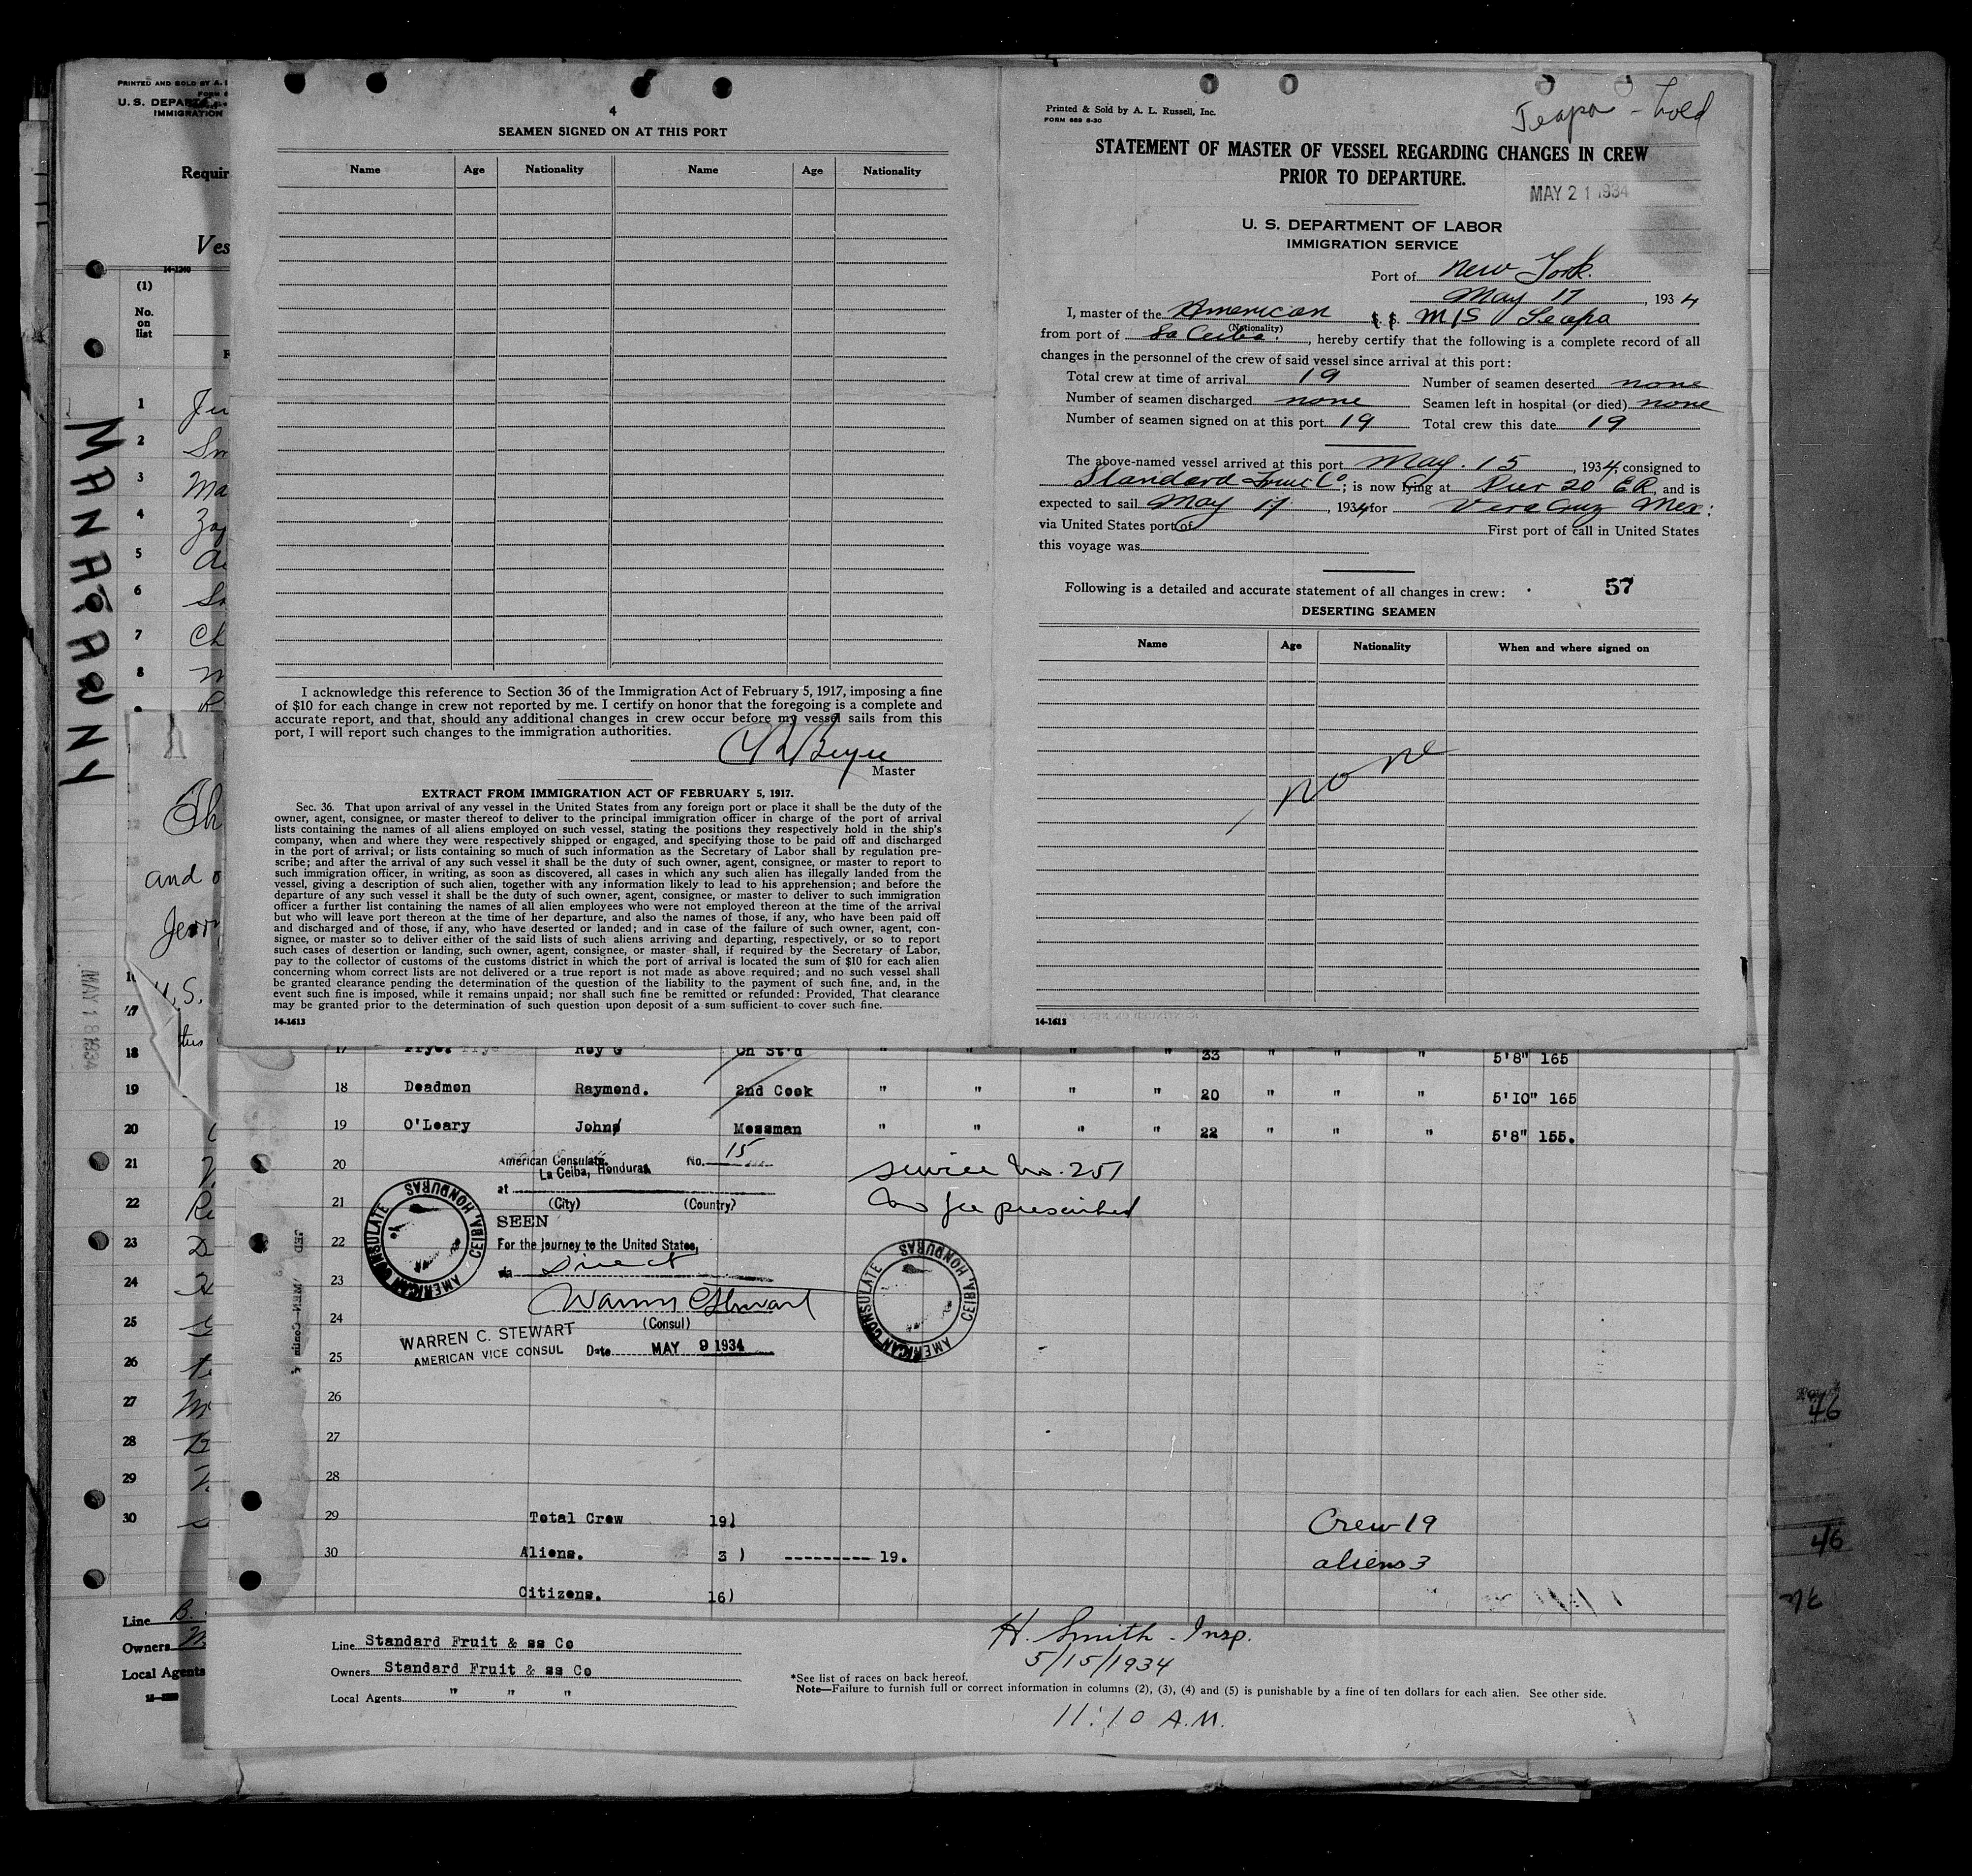 PRINTED AND SOLD BY A.
FORM
U. S. DEPAR
IMMIGRATION
Requir
Ves
14-1240
(1)
No.
on
list
1 Ju
2 Sm
3 Ma
4 Zag
5
6
7 Ch
8
MANATAWNY
and
Jerry
U.S.
this
MAY 18 1934
17
18
19
20
21
22 Re
23
24
25
26
27
28
29
30
Line B.
Owners
Local Agents
4
SEAMEN SIGNED ON AT THIS PORT
Name Age Nationality Name Age Nationality
I acknowledge this reference to Section 36 of the Immigration Act of February 5, 1917, imposing a fine
of $10 for each change in crew not reported by me. I certify on honor that the foregoing is a complete and
accurate report, and that, should any additional changes in crew occur before my vessel sails from this
port, I will report such changes to the immigration authorities.
Master
EXTRACT FROM IMMIGRATION ACT OF FEBRUARY 5, 1917.
Sec. 36. That upon arrival of any vessel in the United States from any foreign port or place it shall be the duty of the
owner, agent, consignee, or master thereof to deliver to the principal immigration officer in charge of the port of arrival
lists containing the names of all aliens employed on such vessel, stating the positions they respectively hold in the ship's
company, when and where they were respectively shipped or engaged, and specifying those to be paid off and discharged
in the port of arrival; or lists containing so much of such information as the Secretary of Labor shall by regulation pre-
scribe; and after the arrival of any such vessel it shall be the duty of such owner, agent, consignee, or master to report to
such immigration officer, in writing, as soon as discovered, all cases in which any such alien has illegally landed from the
vessel, giving a description of such alien, together with any information likely to lead to his apprehension; and before the
departure of any such vessel it shall be the duty of such owner, agent, consignee, or master to deliver to such immigration
officer a further list containing the names of all alien employees who were not employed thereon at the time of the arrival
but who will leave port thereon at the time of her departure, and also the names of those, if any, who have been paid off
and discharged and of those, if any, who have deserted or landed; and in case of the failure of such owner, agent, con-
signee, or master so to deliver either of the said lists of such aliens arriving and departing, respectively, or so to report
such cases of desertion or landing, such owner, agent, consignee, or master shall, if required by the Secretary of Labor,
pay to the collector of customs of the customs district in which the port of arrival is located the sum of $10 for each alien
concerning whom correct lists are not delivered or a true report is not made as above required; and no such vessel shall
be granted clearance pending the determination of the question of the liability to the payment of such fine, and, in the
event such fine is imposed, while it remains unpaid; nor shall such fine be remitted or refunded: Provided, That clearance
may be granted prior to the determination of such question upon deposit of a sum sufficient to cover such fine.
14-1613
Printed & Sold by A. L. Russell, Inc.
FORM 689 8-30
Teapa - hold
STATEMENT OF MASTER OF VESSEL REGARDING CHANGES IN CREW
PRIOR TO DEPARTURE.
MAY 21 1934
U. S. DEPARTMENT OF LABOR
IMMIGRATION SERVICE
Port of New York.
May 17, 1934
I, master of the American S. S. M/S Teapa
(Nationality)
from port of La Ceiba., hereby certify that the following is a complete record of all
changes in the personnel of the crew of said vessel since arrival at this port:
Total crew at time of arrival 19 Number of seamen deserted none
Number of seamen discharged none Seamen left in hospital (or died) none
Number of seamen signed on at this port 19 Total crew this date 19
The above-named vessel arrived at this port May. 15, 1934, consigned to
Standard Fruit Co; is now lying at Pier 20 ER, and is
expected to sail May 17, 1934 for Vera Cruz Mex:
via United States port of First port of call in United States
this voyage was
Following is a detailed and accurate statement of all changes in crew: 57
DESERTING SEAMEN
Name Age Nationality When and where signed on
none
14-1613
17 Frye. Roy G Ch St'd " " " " 33 " " " 5'8" 165
18 Deadmon Raymond. 2nd Cook " " " " 20 " " " 5'10" 165
19 O'Leary John Messman " " " " 22 " " " 5'8" 155.
20 American Consulate. No. 15
La Ceiba, Honduras
at
service no. 251
21 (City) (Country)
no fee prescribed
SEEN
22 For the journey to the United States,
via Direct
23
Warren C Stewart
24 (Consul)
WARREN C. STEWART
AMERICAN VICE CONSUL Date MAY 9 1934
AMERICAN CONSULATE CEIBA, HONDURAS
AMERICAN CONSULATE CEIBA, HONDURAS
25
26
27
28
29 Total Crew 19) Crew 19
30 Aliens. 3 ) --------- 19. aliens 3
Citizens. 16)
Line Standard Fruit & ss Co
Owners Standard Fruit & ss Co
Local Agents " " "
H. Smith - Insp.
5/15/1934
*See list of races on back hereof.
Note—Failure to furnish full or correct information in columns (2), (3), (4) and (5) is punishable by a fine of ten dollars for each alien. See other side.
11:10 A.M.
46
46